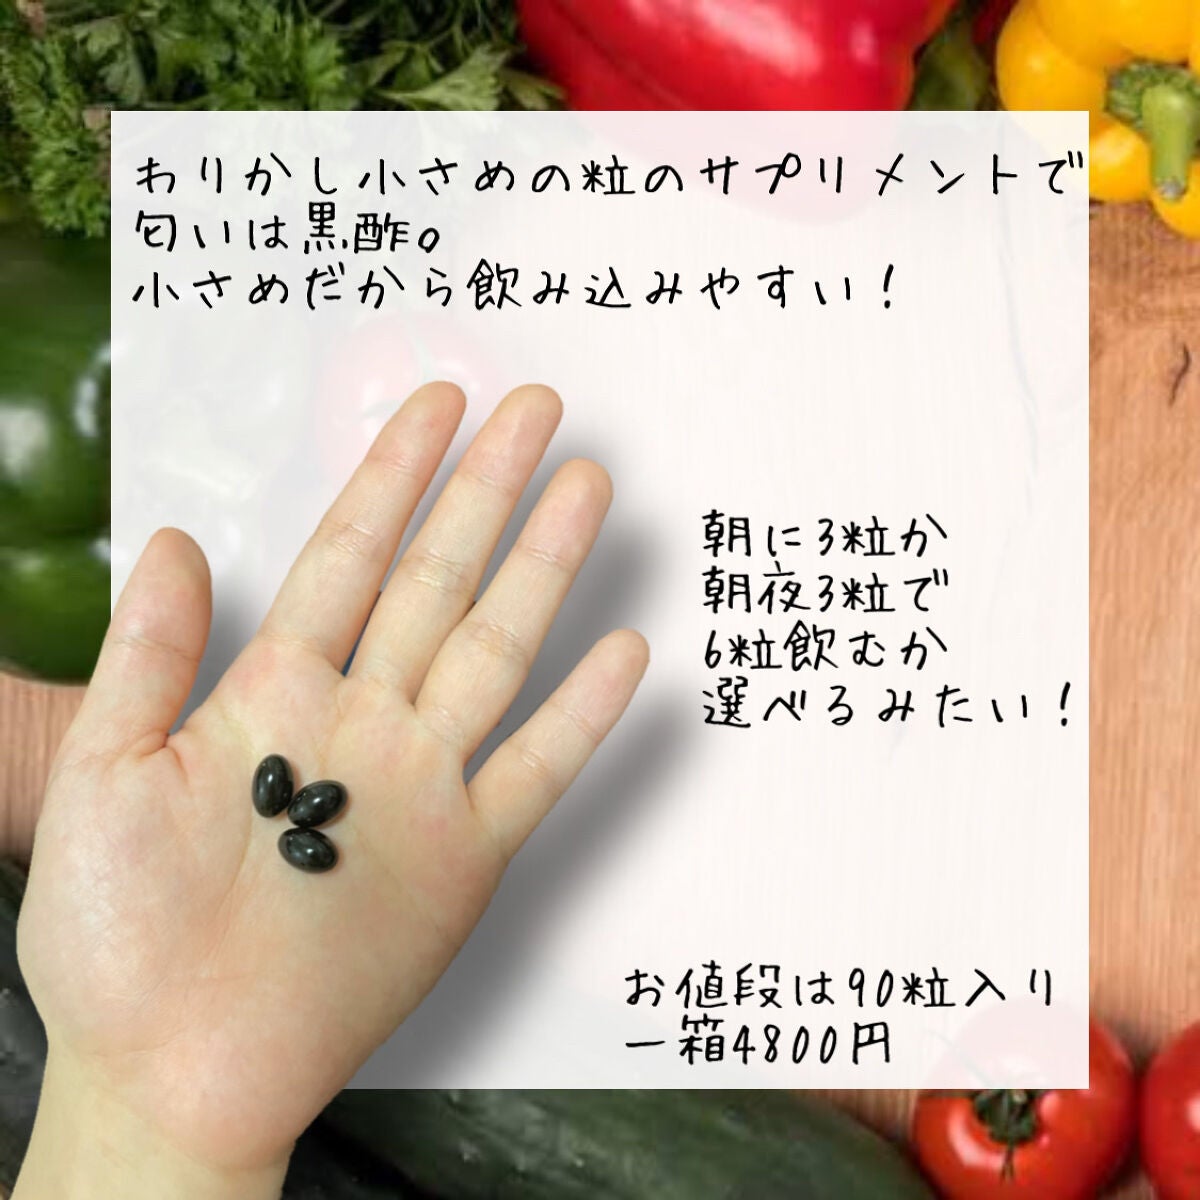 わりかし小さめの粒のサプリメントで
匂いは黒酢。
小さめだから飲み込みやすい！
朝に3粒か
朝夜3粒で
6粒飲むか
選べるみたい！
お値段は90粒入り
一箱4800円